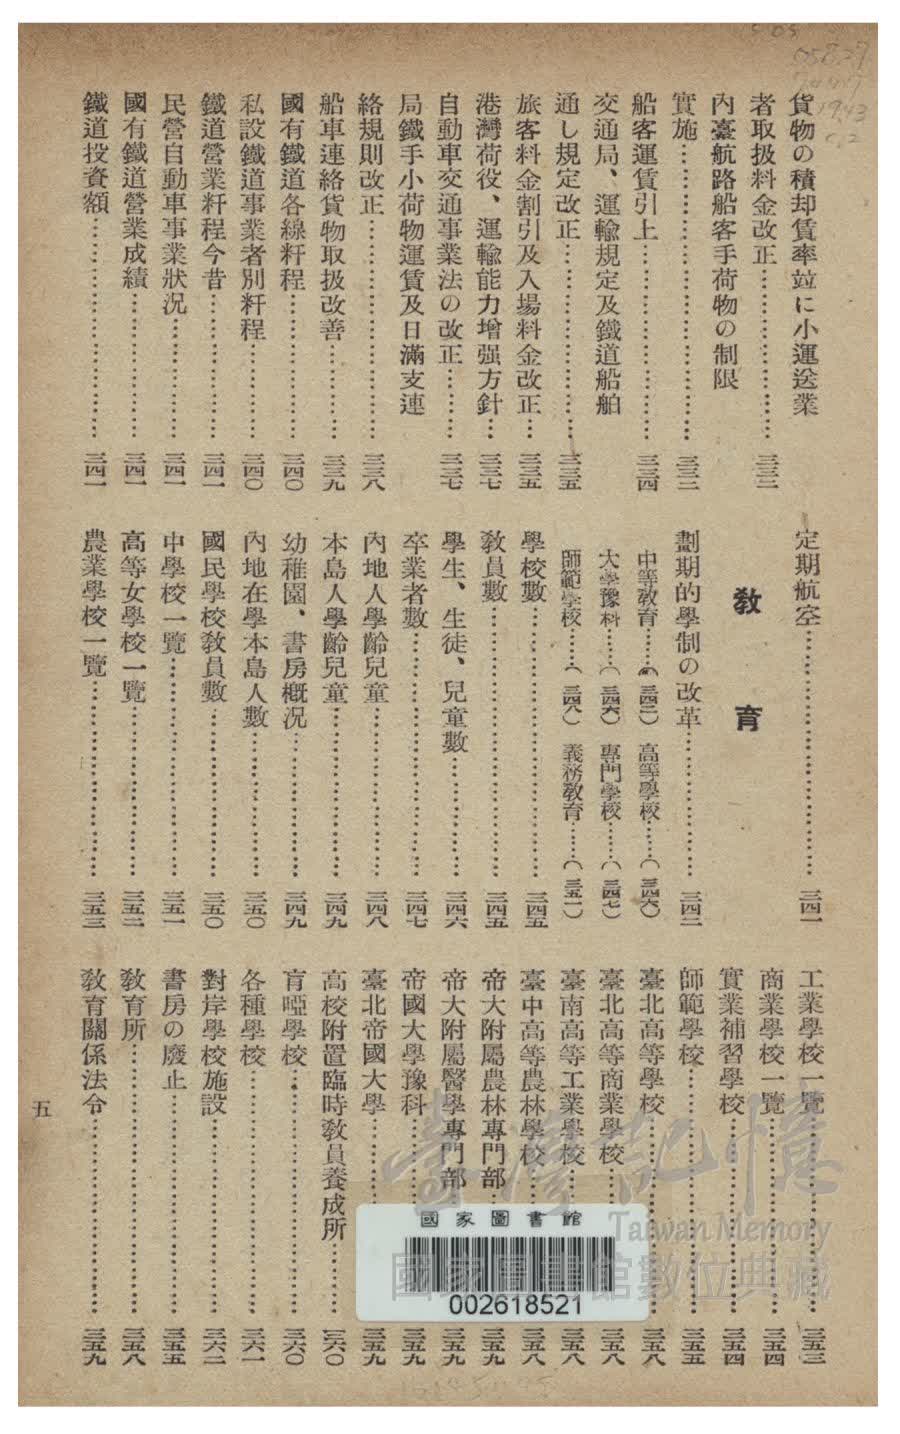 貨物の積却賃率竝に小運送業
者取扱料金改正……………………三三二
內臺航路船客手荷物の制限
實施……………………三三二
船客運賃引上……………………三三四
交通局、運輸規定及鐵道船舶
通し規定改正……………………三三五
旅客料金割引及入場料金改正…三三五
港灣荷役、運輸能力增强方針…三三七
自動車交通事業法の改正………三三七
局鐵手小荷物運賃及日滿支連
絡規則改正……………………三三八
船車連絡貨物取扱改善…………三三九
國有鐵道各線粁程………………三四〇
私設鐵道事業者別粁程…………三四〇
鐵道營業粁程今昔………………三四一
民營自動車事業狀況……………三四一
國有鐵道營業成績………………三四一
鐵道投資額………………………三四一
定期航空…………………………三四一
敎育
劃期的學制の改革………………三四二
中等敎育……(三四二) 高等學校……(三四六)
大學豫科……(三四六) 專門學校……(三四七)
師範學校……(三四八) 義務敎育……(三五一)
學校數……………………………三四五
敎員數……………………………三四五
學生、生徒、兒童數……………三四六
卒業者數…………………………三四七
內地人學齡兒童…………………三四八
本島人學齡兒童…………………三四九
幼稚園、書房槪況………………三四九
內地在學本島人數………………三五〇
國民學校敎員數…………………三五〇
中學校一覽………………………三五一
高等女學校一覽…………………三五二
農業學校一覽……………………三五三
工業學校一覽……………………三五三
商業學校一覽……………………三五四
實業補習學校……………………三五四
師範學校…………………………三五五
臺北高等學校……………………三五八
臺北高等商業學校………………三五八
臺南高等工業學校………………三五八
臺中高等農林學校………………三五八
帝大附屬農林專門部……………三五九
帝大附屬醫學專門部……………三五九
帝國大學豫科……………………三五九
臺北帝國大學……………………三五九
高校附置臨時敎員養成所………三六〇
盲啞學校…………………………三六〇
各種學校…………………………三六一
對岸學校施設……………………三六二
書房の廢止………………………三五五
敎育所……………………………三五八
敎育關係法令……………………三五九
五
國家圖書館
002618521
臺灣記憶
Taiwan Memory
國家圖書館數位典藏